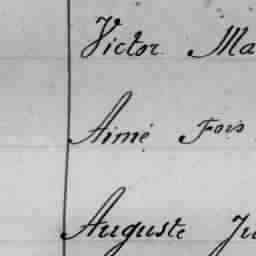 Victor Ma
Aimé Fois
Auguste Ju